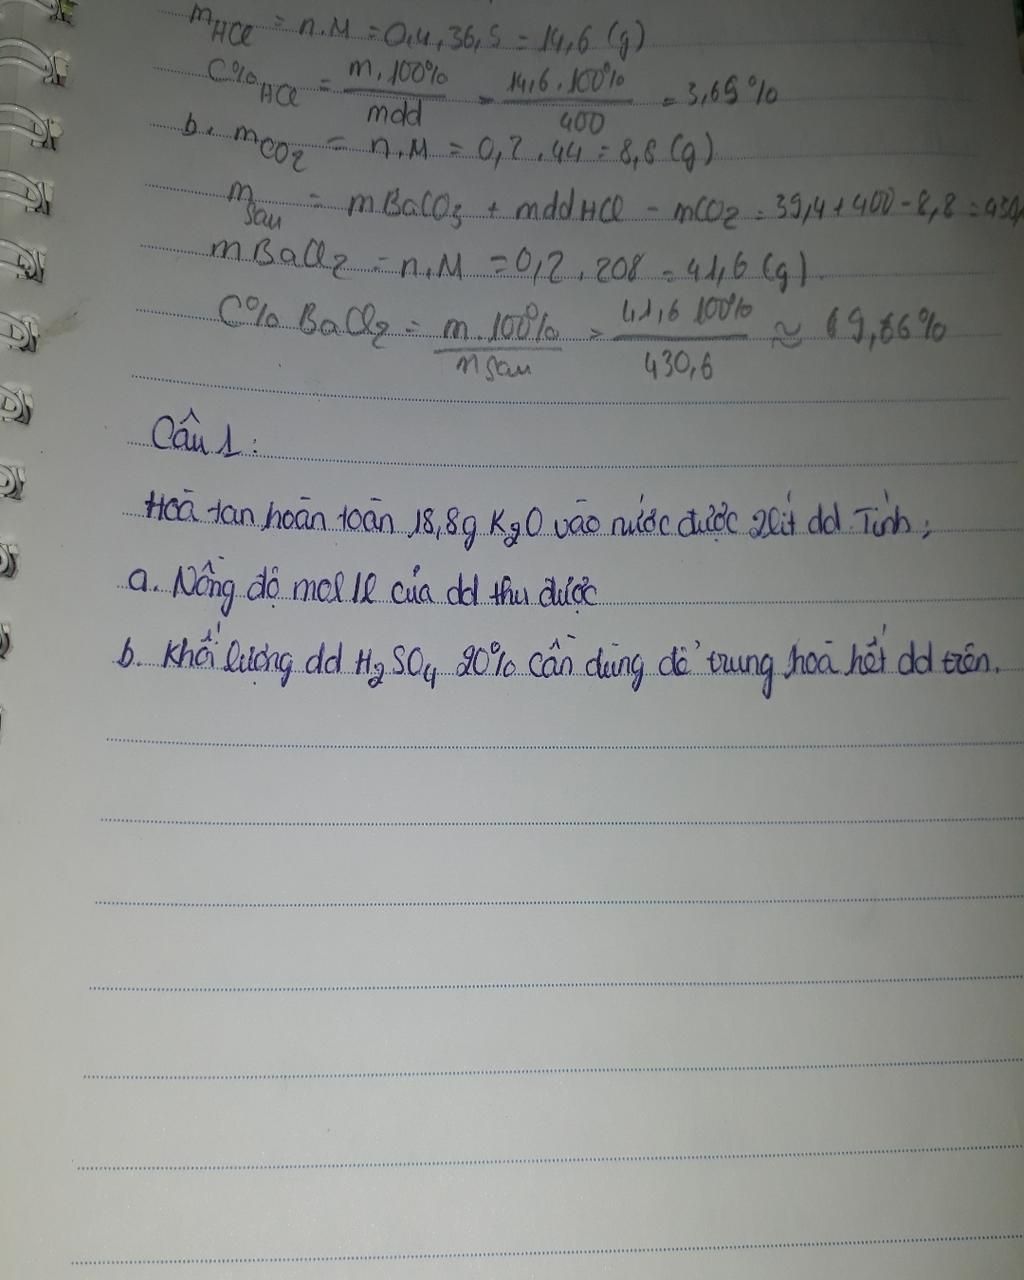 mHCl = n.M = 0,4.36,5 = 14,6 (g)
C%HCl = m.100%/mdd = 14,6.100%/400 = 3,65%
b. mCO2 = n.M = 0,2.44 = 8,8 (g)
m sau = mBaCO3 + mddHCl - mCO2 = 39,4 + 400 - 8,8 = 430,
mBaCl2 = n.M = 0,2.208 = 41,6 (g)
C% BaCl2 = m.100%/m sau = 41,6 100%/430,6 ≈
Câu 1:
Hoà tan hoàn toàn 18,8g K2O vào nước được 2lít dd. Tính:
a. Nồng độ mol/l của dd thu được
b. Khối lượng dd H2SO4 20% cần dùng để trung hoà hết dd trên.